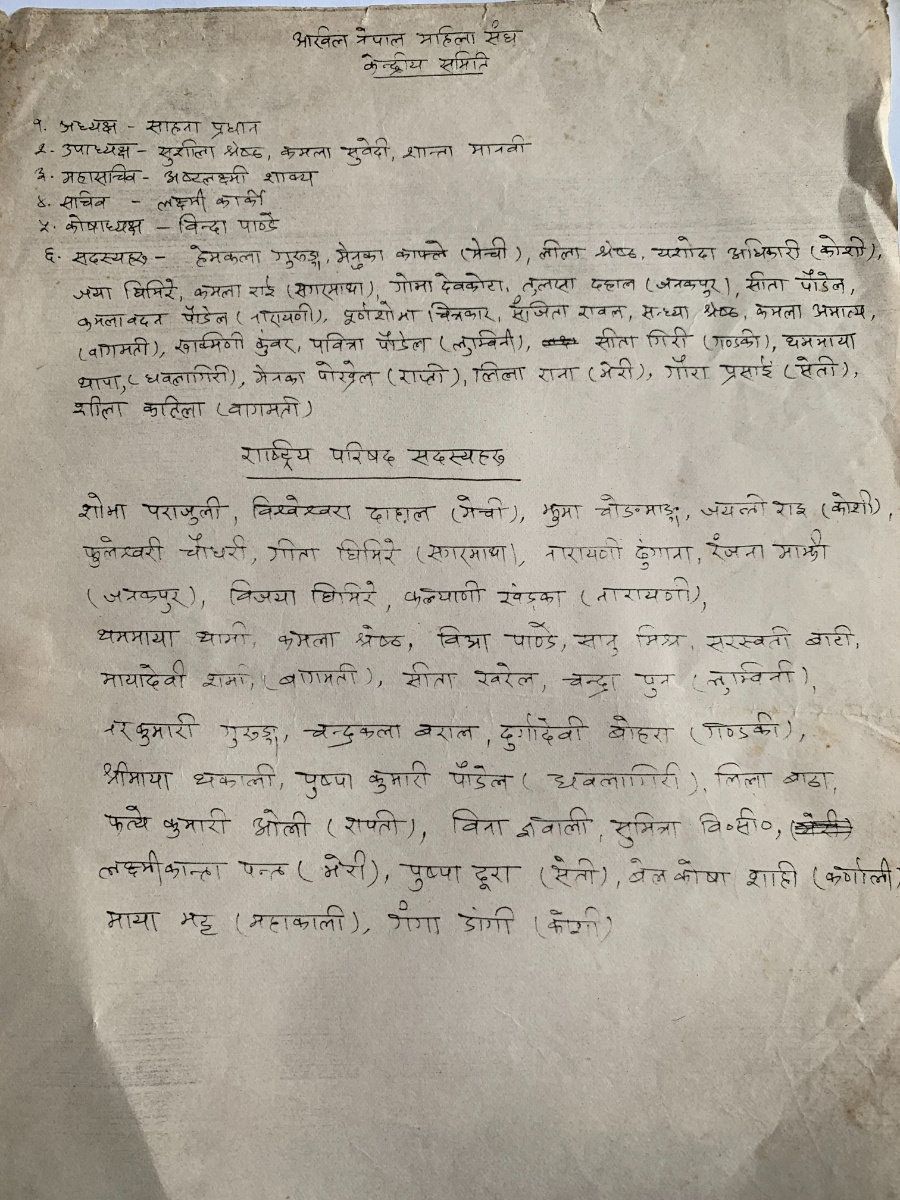 अखिल नेपाल महिला संघ
केन्द्रीय समिति
१. अध्यक्ष - साहना प्रधान
२. उपाध्यक्ष - सुशीला श्रेष्ठ, कमला सुवेदी, शान्ता मानवी
३. महासचिव - अष्टलक्ष्मी शाक्य
४. सचिव - लक्ष्मी कार्की
५. कोषाध्यक्ष - विन्दा पाण्डे
६. सदस्यहरु - हेमकला गुरुङ्ग, मेनुका काफ्ले (मेची), लीला श्रेष्ठ, यशोदा अधिकारी (कोशी),
जया घिमिरे, कमला राई (सगरमाथा), गोमा देवकोटा, तुलसा दहाल (जनकपुर), सीता पौडेल,
कमलावदन पौडेल (नारायणी), पूर्णशोभा चित्रकार, सँजिता रावल, सन्ध्या श्रेष्ठ, कमला अमात्य,
(वागमती), रुक्मिणी कुंवर, पवित्रा पौडेल (लुम्बिनी), सीता गिरी (गण्डकी), थममाया
थापा, (धवलागिरी), मेनका पोखरेल (राप्ती), लिला राना (भेरी), गौरा प्रसाईं (सेती),
शीला कटिला (वागमती)
राष्ट्रिय परिषद सदस्यहरु
शोभा पराजुली, विश्वेश्वरा दाहाल (मेची), झुमा चोङमाङ्ग, जयन्ती राइ (कोशी),
फुलेश्वरी चौधरी, गीता घिमिरे (सगरमाथा), नारायणी ढुंगाना, रंजना माझी
(जनकपुर), विजया घिमिरे, कल्याणी खंड्का (नारायणी),
थममाया थामी, कमला श्रेष्ठ, विभा पाण्डे, सानु मिश्र, सरस्वती बाटी,
मायादेवी शर्मा, (बागमती), सीता खरेल, चन्द्रा पुन (लुम्बिनी),
नरकुमारी गुरुङ्ग, चन्द्रकला बराल, दुर्गादेवी बोहरा (गण्डकी),
श्रीमाया थकाली, पुष्पा कुमारी पौडेल (धवलागिरी), लिला बाठा,
फत्ये कुमारी ओली (राप्ती), विना ज्ञवाली, सुमित्रा वि॰सी॰,
लक्ष्मीकान्ता पन्त (भेरी), पुष्पा दूरा (सेती), बेलकोषा शाही (कर्णाली)
माया भट्ट (महाकाली), गंगा डांगी (कोशी)